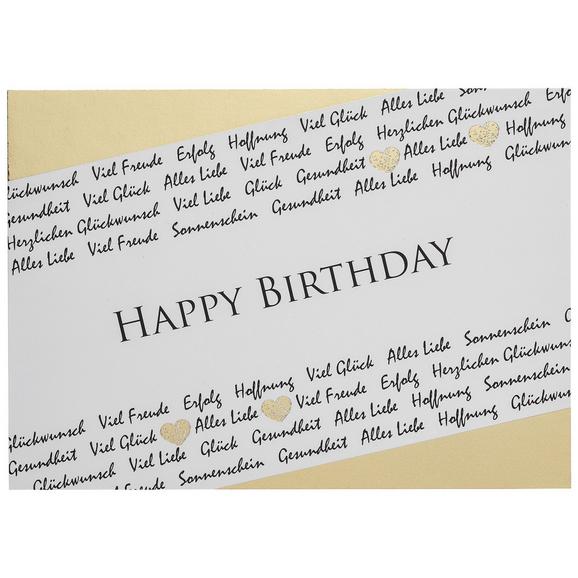 lückwunsch Viel Freude Erfolg Hoffnung Viel Glück Alles Liebe
esundheit Viel Glück Alles Liebe Viel Freude Erfolg Herzlichen Glückwunsch Erfo
Herzlichen Glückwunsch Viel Liebe Glück Gesundheit Alles Liebe Hoffnung
Alles Liebe Viel Freude Sonnenschein Gesundheit Alles Liebe Hoffnung Glückwun
HAPPY BIRTHDAY
Glückwunsch Viel Freude Erfolg Hoffnung Viel Glück Alles Liebe Sonnenschein
Gesundheit Viel Glück Alles Liebe Viel Freude Erfolg Herzlichen Glückwunsch
Viel Liebe Glück Gesundheit Alles Liebe Hoffnung Gesundheit
Viel Freude Sonnenschein Gesundheit Alles Liebe Hoffnung Glückwun